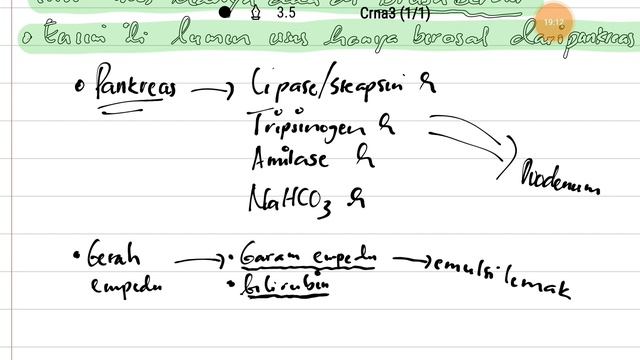 3.5 Crna3 (1/1) 19:12
lumen usus hanya berasal dari pankreas
• Pankreas → Lipase/steapsin
Tripsinogen
Amilase
NaHCO3
Duodenum
• Getah → • Garam empedu → emulsi lemak
empedu • bilirubin